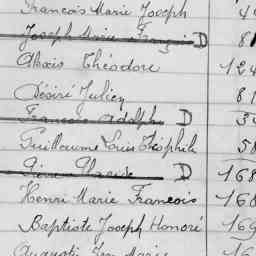 François Marie Joseph 4
Joseph Marie François D 8
Aloïs Théodore 124
Désiré Julien 81
François Adolphe D 34
Guillaume Louis Théophile 58
Pierre D 168
Henri Marie François 168
Baptiste Joseph Honoré 169
Augustin Jean Marie 16